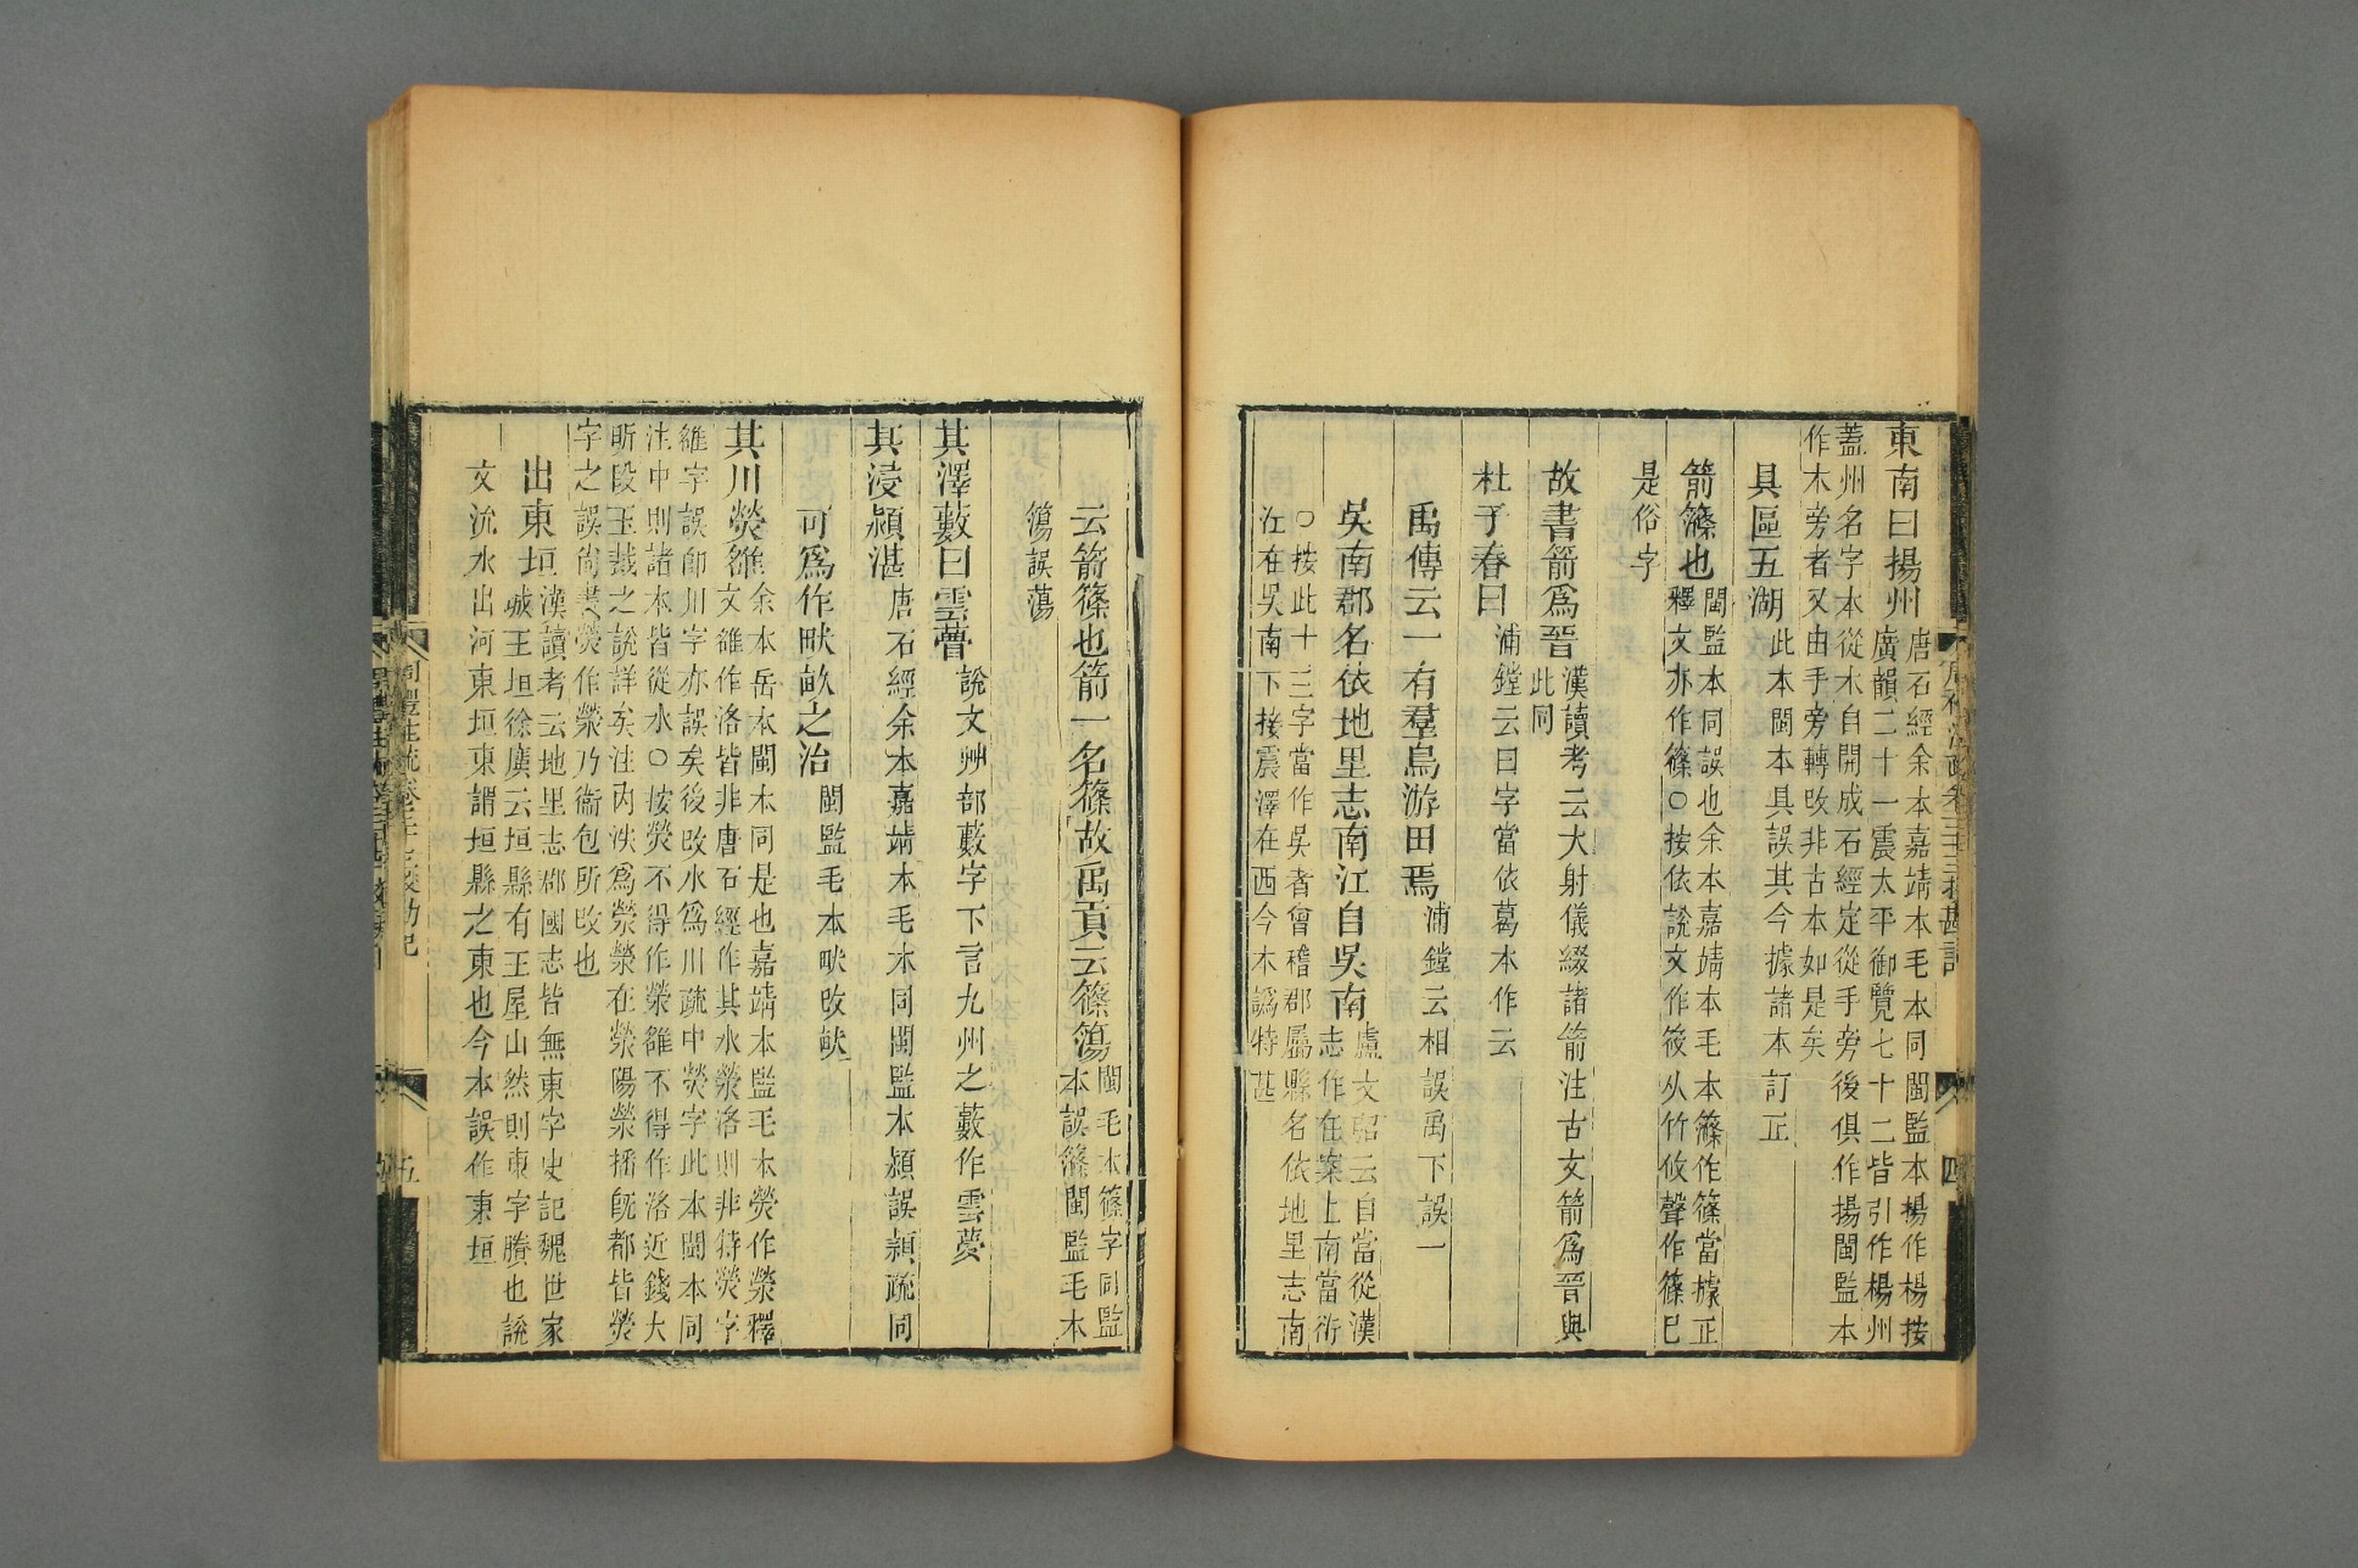 東南曰揚州
唐石經余本嘉靖本毛本同閩監本楊作楊按
廣韻二十一震太平御覽七十二皆引作楊州
蓋州名字本從木自開成石經定從手旁後俱作揚閩監本
作木旁者又由手旁轉改非古本如是矣
具區五湖
此本閩本具誤其今據諸本訂正
箭篠也
閩監本同誤也余本嘉靖本毛本篠作篠當據正
釋文亦作篠○按依說文作筱从竹攸聲作篠已
是俗字
故書箭爲晉
漢讀考云大射儀綴諸箭注古文箭爲晉與
此同
杜子春曰
浦鏜云曰字當依葛本作云
禹傳云一有羣鳥游田焉
浦鏜云相誤禹下誤一
吳南郡名依地里志南江自吳南
盧文弨云自當從漢
志作在案上南當衍
○按此十三字當作吳者會稽郡屬縣名依地里志南
江在吳南下接震澤在西今本譌特甚
云箭篠也箭一名篠故禹貢云篠簜
閩毛本篠字同監
本誤篠閩監毛本
簜誤蕩
其澤藪曰雲瞢
說文艸部藪字下言九州之藪作雲夢
其浸潁湛
唐石經余本嘉靖本毛本同閩監本潁誤頴疏同
可爲作畎畝之治
閩監毛本畎改𤱶
其川熒雒
余本岳本閩本同是也嘉靖本監毛本熒作滎釋
文雒作洛皆非唐石經作其水滎洛則非特熒字
雒字誤卽川字亦誤矣後改水爲川疏中熒字此本閩本同
注中則諸本皆從水○按熒不得作滎雒不得作洛近錢大
昕段玉裁之說詳矣注內泆爲滎滎在滎陽滎播旣都皆熒
字之誤尙書熒作滎乃衞包所改也
出東垣
漢讀考云地里志郡國志皆無東字史記魏世家
城王垣徐廣云垣縣有王屋山然則東字賸也說
文沇水出河東垣東謂垣縣之東也今本誤作東垣
周禮注疏卷三十三校勘記
五
四